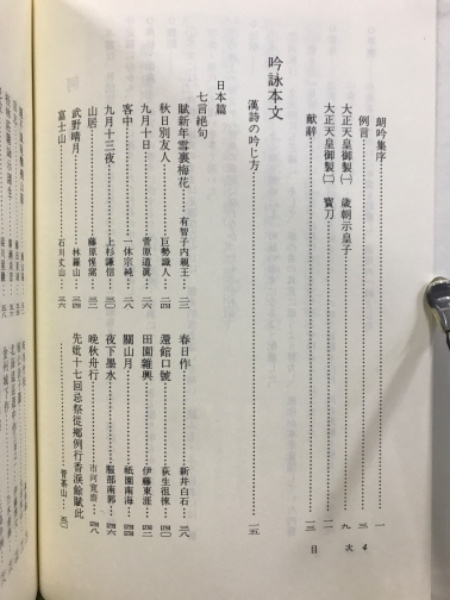 朗吟集序…………一
例言…………三
大正天皇御製(一) 歲朝示皇子…………九
大正天皇御製(二) 寶刀…………一一
献辭…………一三
吟詠本文
漢詩の吟じ方…………一五
日本篇
七言絶句
賦新年雪裏梅花…有智子内親王…二二
秋日別友人………巨勢識人…二四
九月十日…………菅原道眞…二六
客中…………一休宗純…二八
九月十三夜………上杉謙信…三〇
山居…………藤原惺窩…三二
武野晴月…………林羅山…三四
富士山…………石川丈山…三六
春日作…………新井白石…三八
還館口號…………荻生徂徠…四〇
田園雜興…………伊藤東涯…四二
關山月…………祇園南海…四四
夜下墨水…………服部南郭…四六
晩秋舟行…………市河寛齋…四八
先妣十七回忌祭從鄉例行香淚餘賦此…………菅茶山…五〇
目次 4